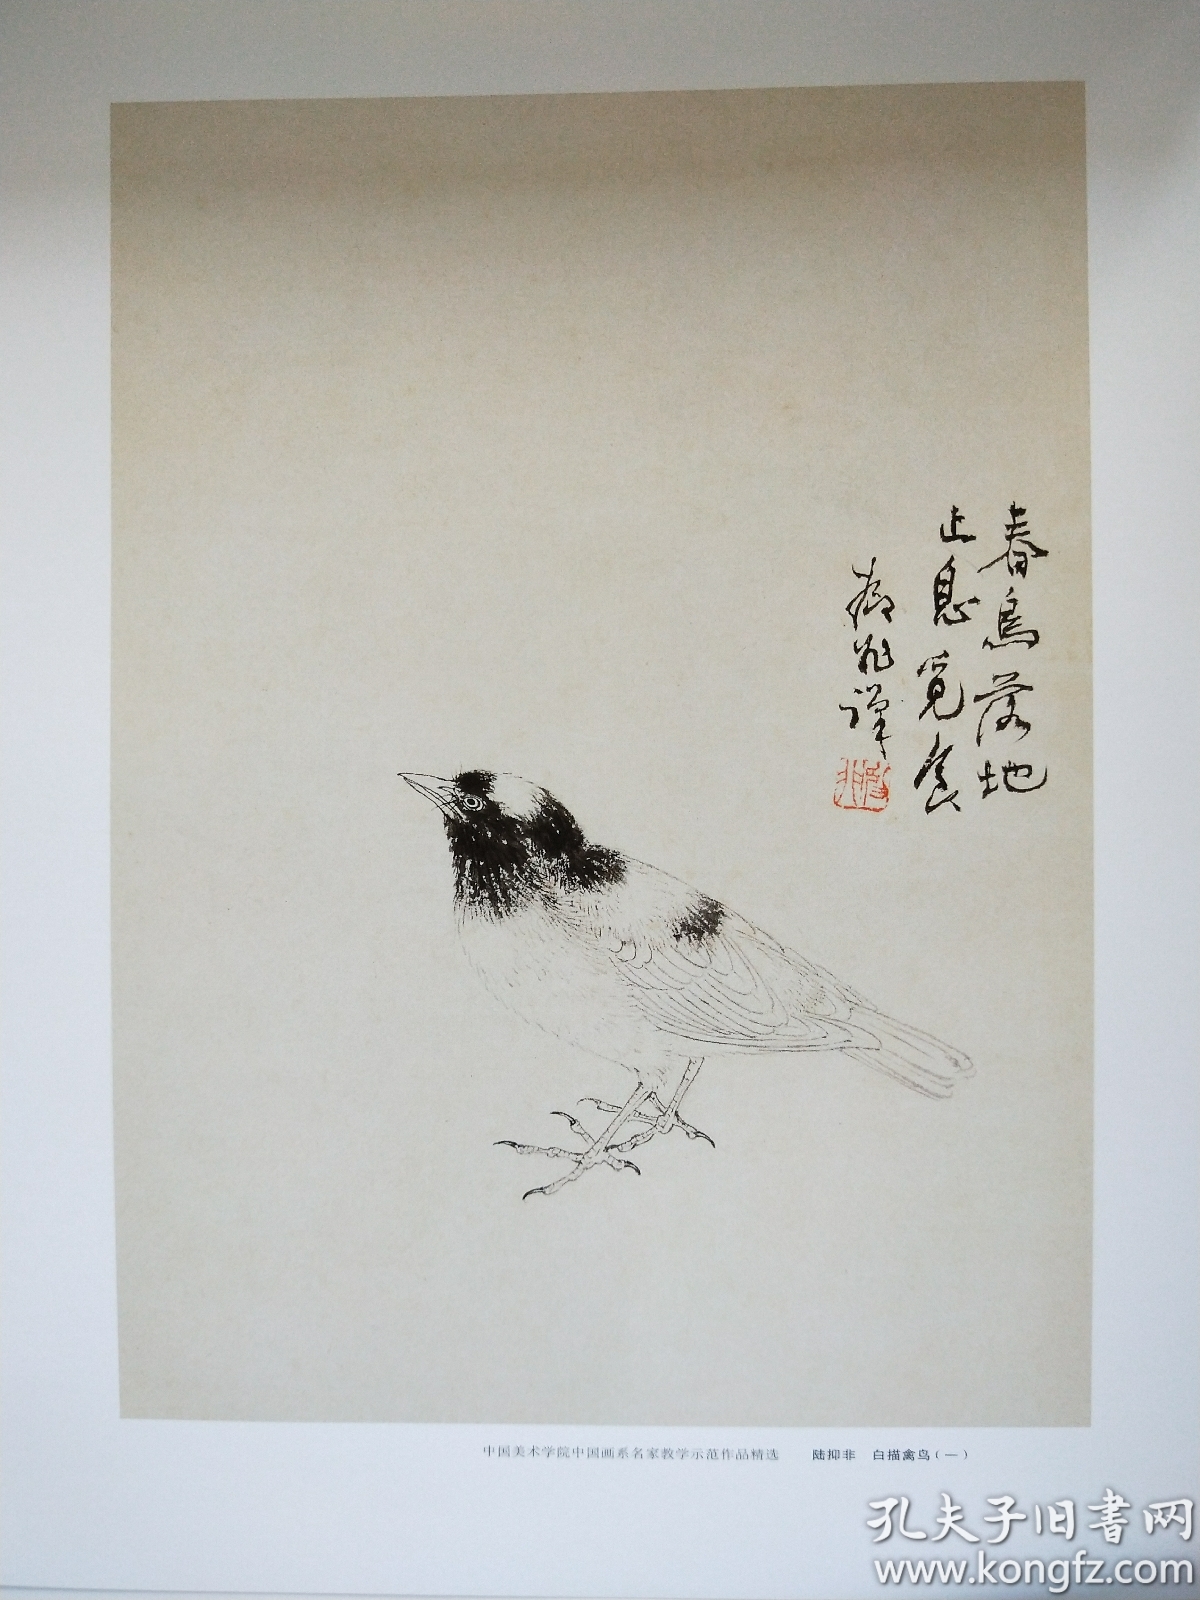 春鳥落地
止息覓食
中国美术学院中国画系名家教学示范作品精选 陆抑非 白描禽鸟(一)
孔夫子旧書网
www.kongfz.com